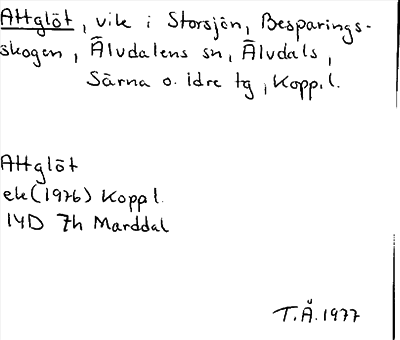 Attglöt, vik i Storsjön, Besparings-
skogen, Älvdalens sn, Älvdals,
Särna o. Idre tg, Koppl.
Attglöt
ek (1976) Koppl.
14D 7h Marddal
T.Å. 1977